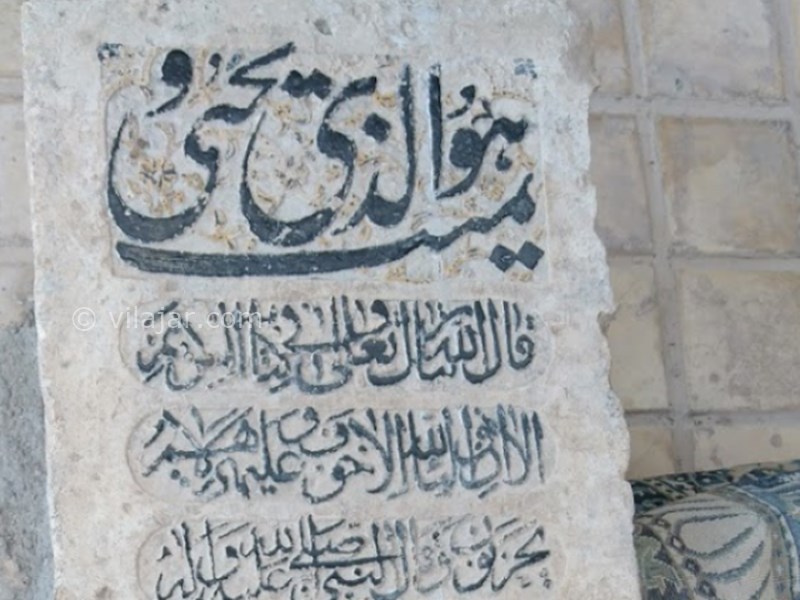 هو الذی یحیی و
یمیت
قال الله تبارک و تعالی فی کتابه
الا ان اولیاء الله لا خوف علیهم و لا هم
یحزنون و قال النبی صلی الله علیه و آله
© vilajar.com